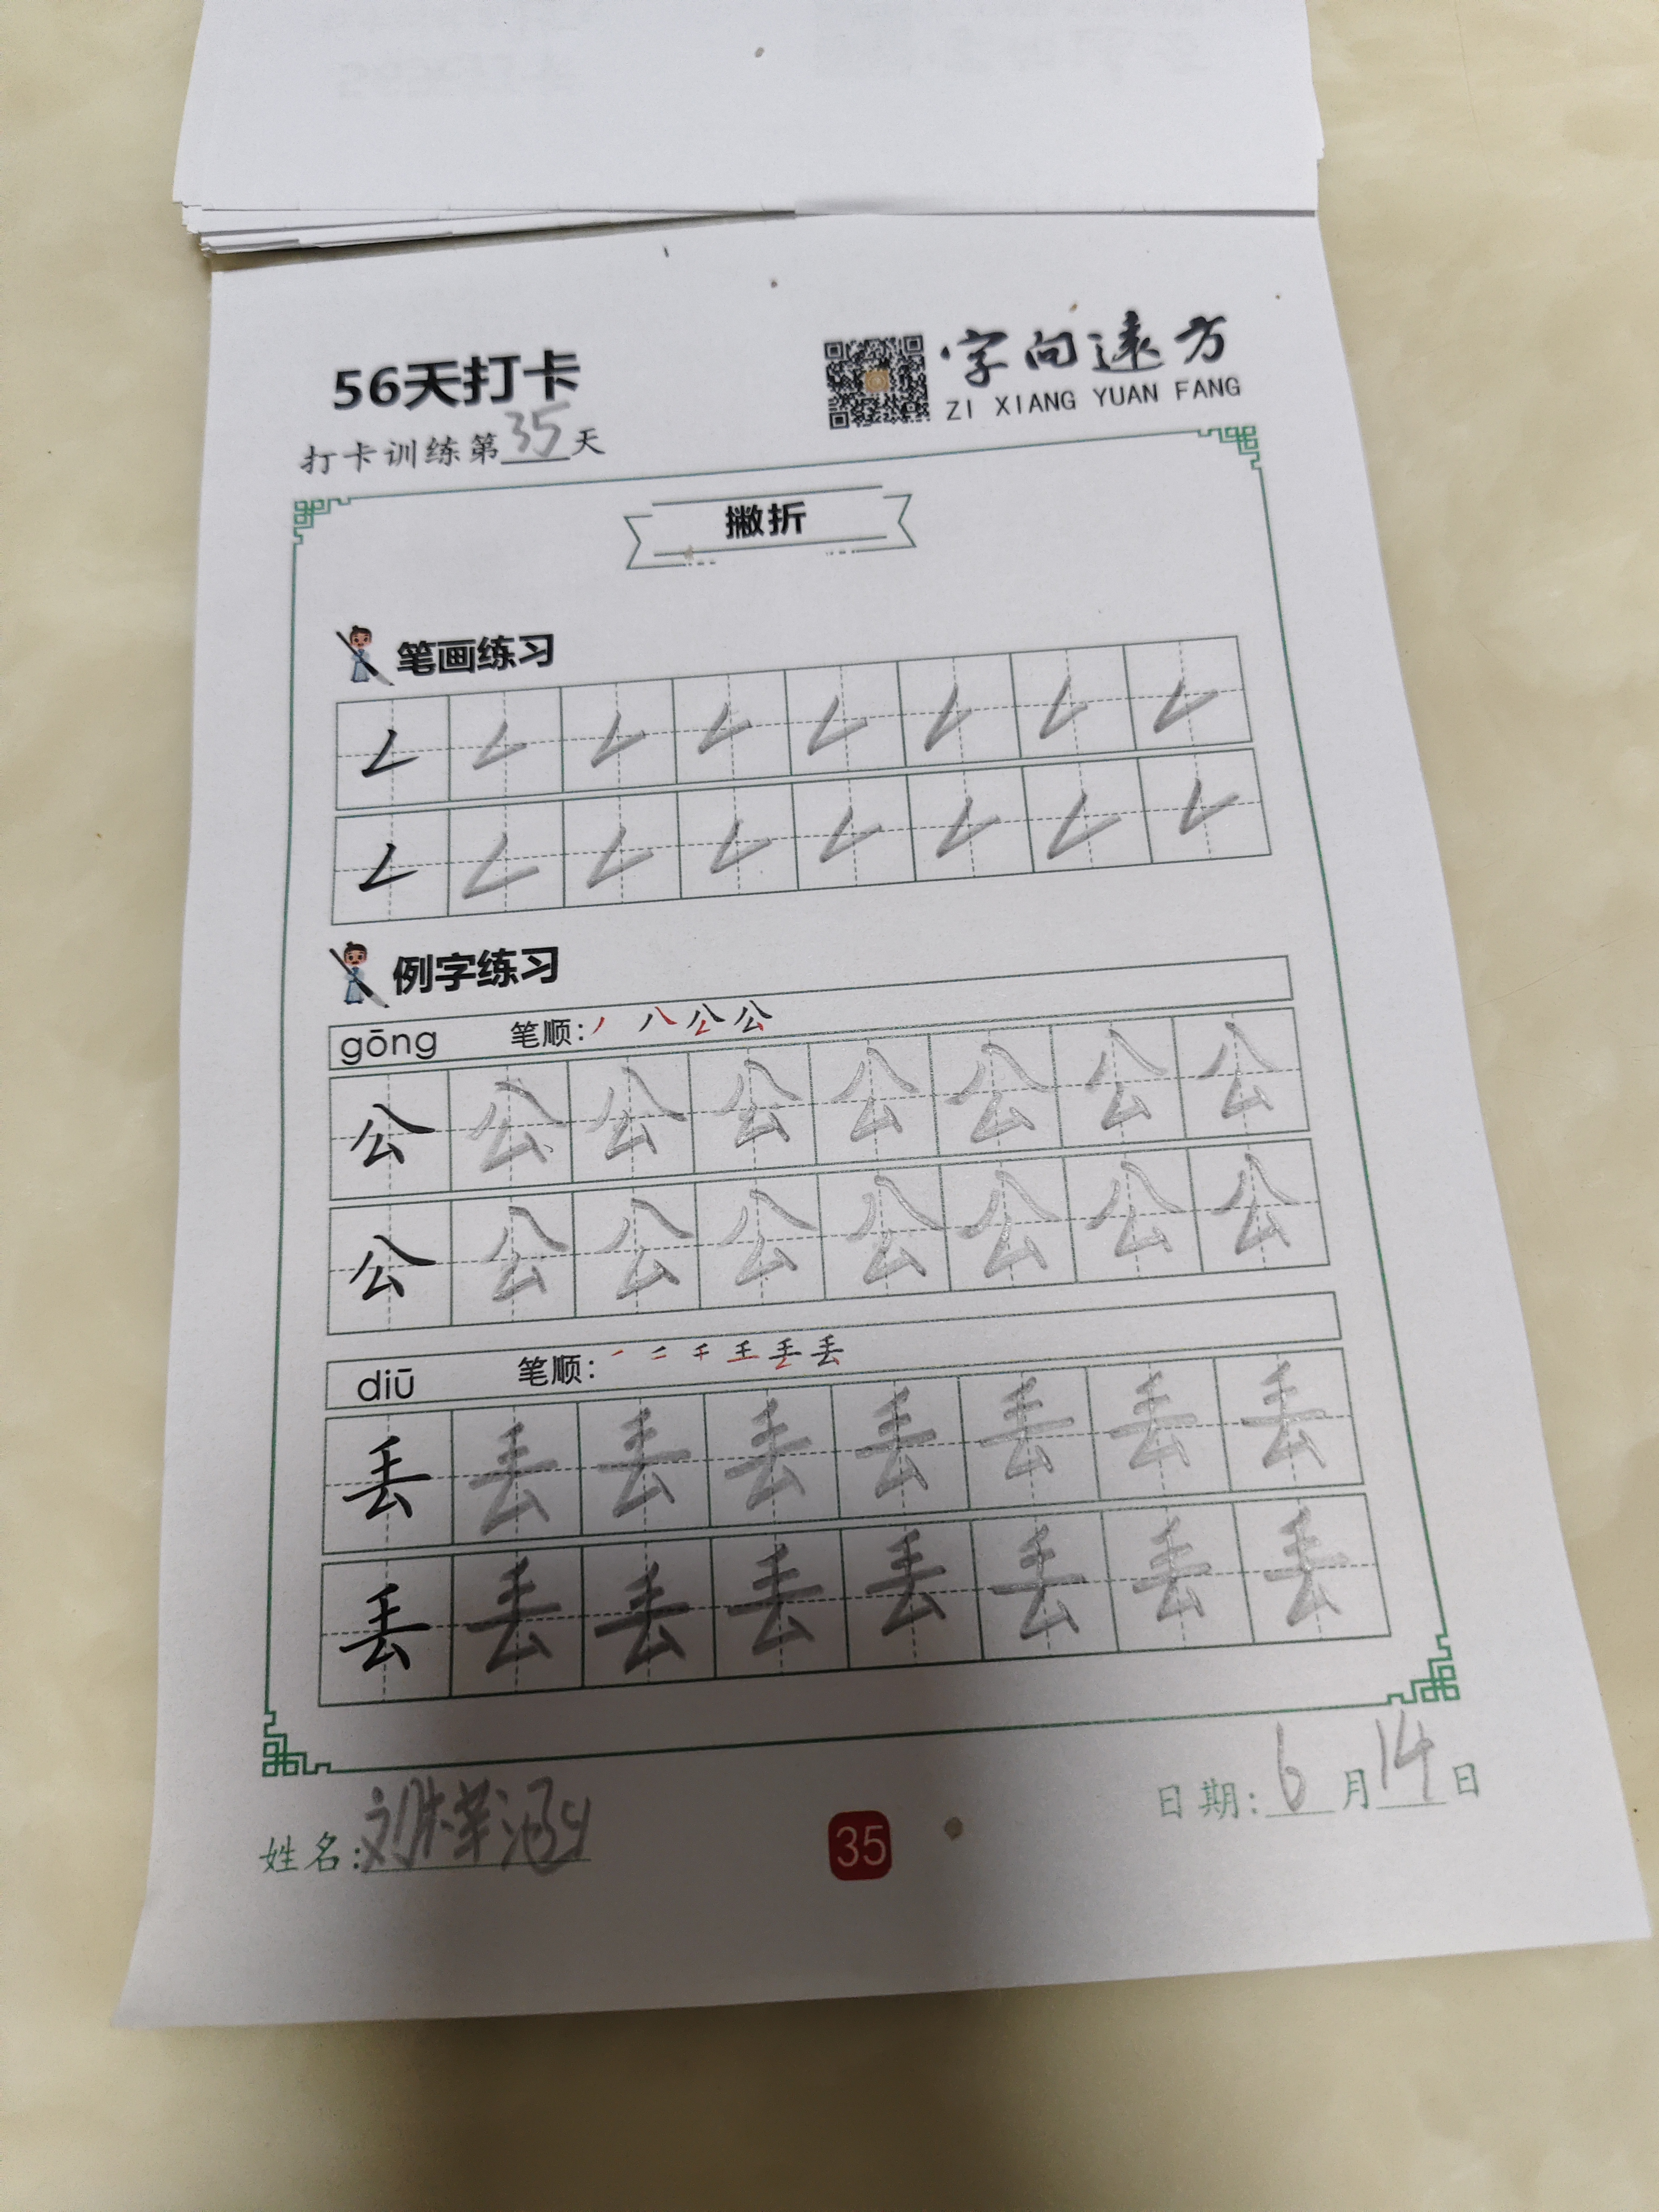 56天打卡
字向远方
ZI XIANG YUAN FANG
打卡训练第35天
撇折
笔画练习
例字练习
gōng 笔顺: 丿 八 公 公
公 公 公 公 公 公 公 公
公 公 公 公 公 公 公 公
diū 笔顺:
丢 丢 丢 丢 丢 丢 丢 丢
丢 丢 丢 丢 丢 丢 丢 丢
姓名:刘
35
日期:6月14日